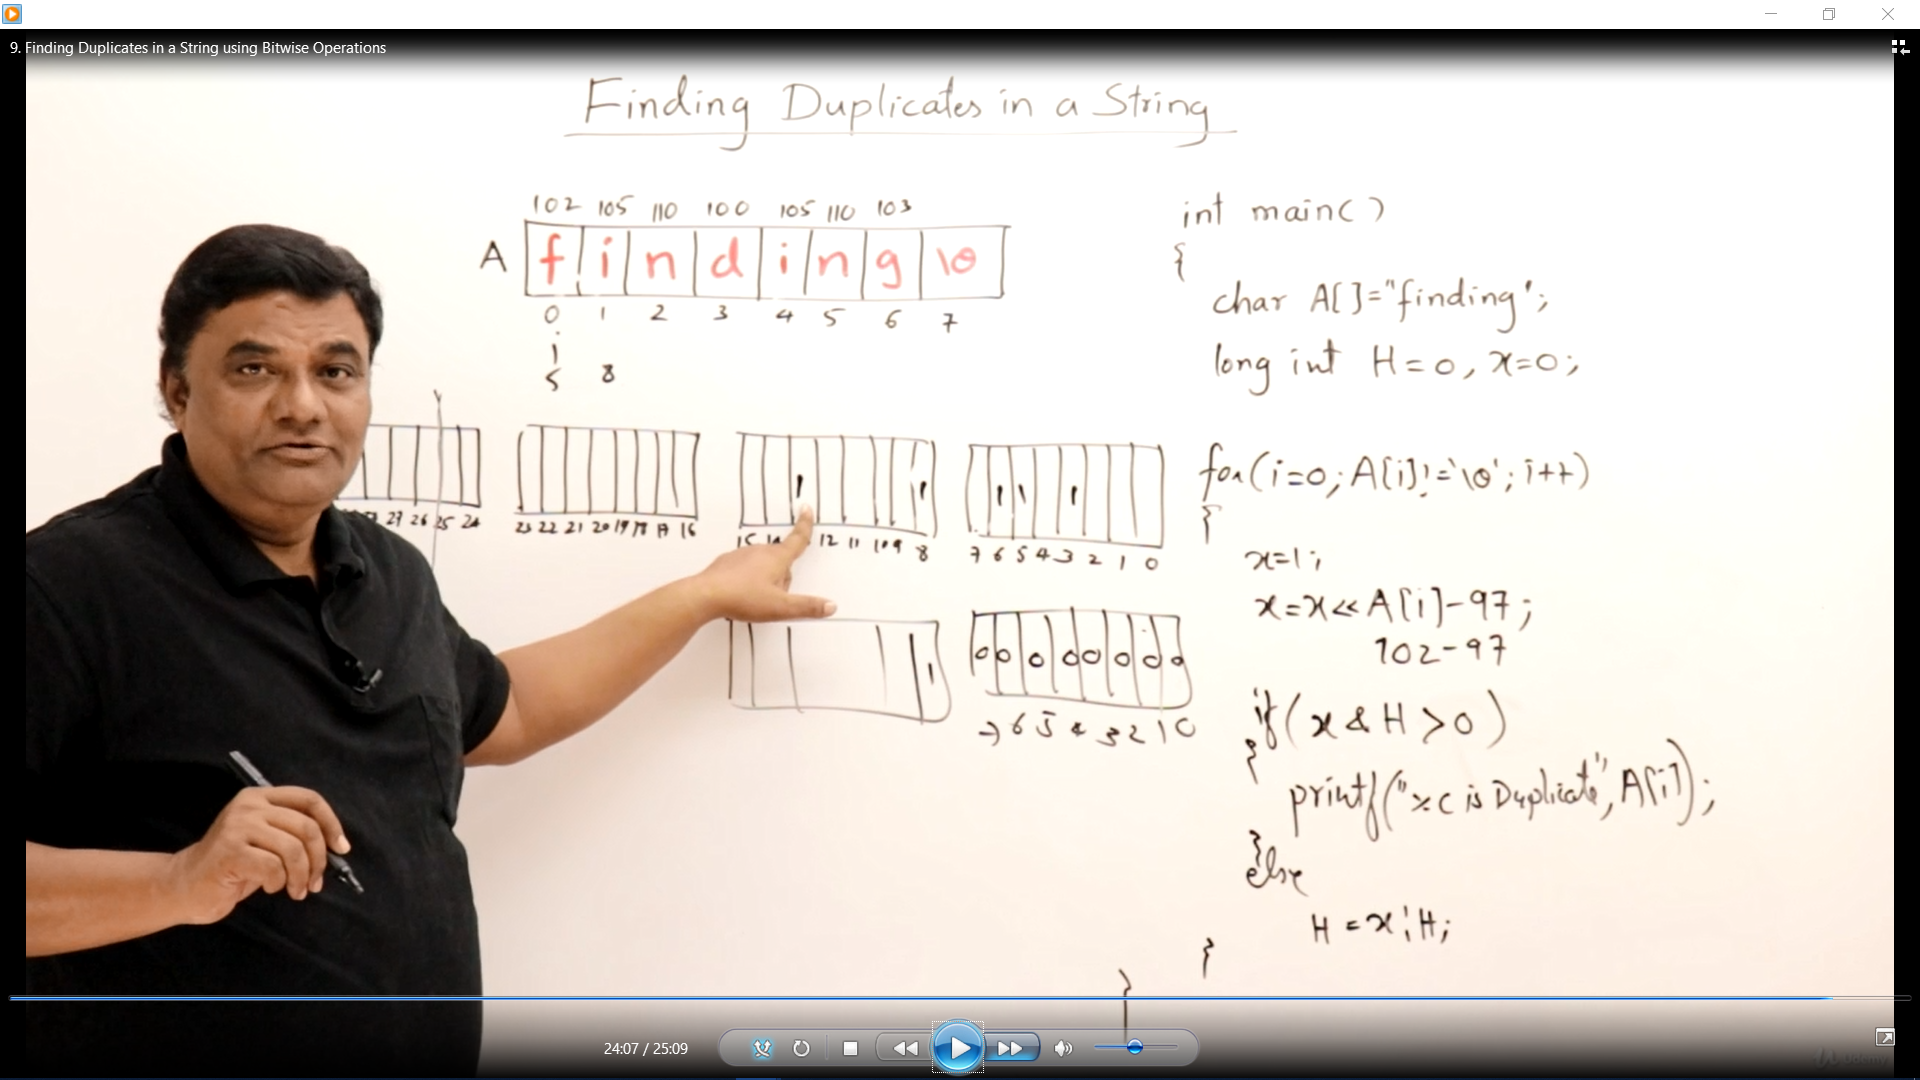 9. Finding Duplicates in a String using Bitwise Operations
Finding Duplicates in a String
102 105 110 100 105 110 103
A f i n d i n g \0
0 1 2 3 4 5 6 7
5 8
27 26 25 24
23 22 21 20 19 18 17 16
15 12 11 10 9 8
7 6 5 4 3 2 1 0
0 0 0 0 0 0 0 0
7 6 5 4 3 2 1 0
int main()
{
char A[]="finding";
long int H=0, x=0;
for(i=0; A[i]!='\0'; i++)
{
x=1;
x=x<<A[i]-97;
102-97
if(x & H >0)
{
printf("%c is Duplicate", A[i]);
}
else
H = x|H;
}
}
24:07 / 25:09
Udemy